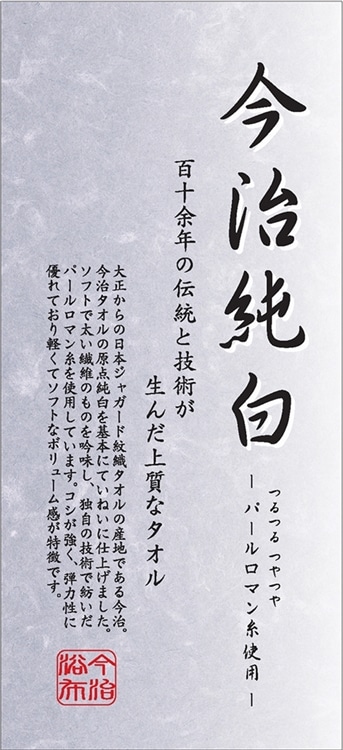 今治純白
つるつる つやつや
ーパールロマン糸使用ー
百十余年の伝統と技術が
生んだ上質なタオル
大正からの日本ジャガード紋織タオルの産地である今治。
今治タオルの原点純白を基本にていねいに仕上げました。
ソフトで太い繊維のものを吟味し、独自の技術で紡いだ
パールロマン糸を使用しています。コシが強く、弾力性に
優れており軽くてソフトなボリューム感が特徴です。
今治
浴布